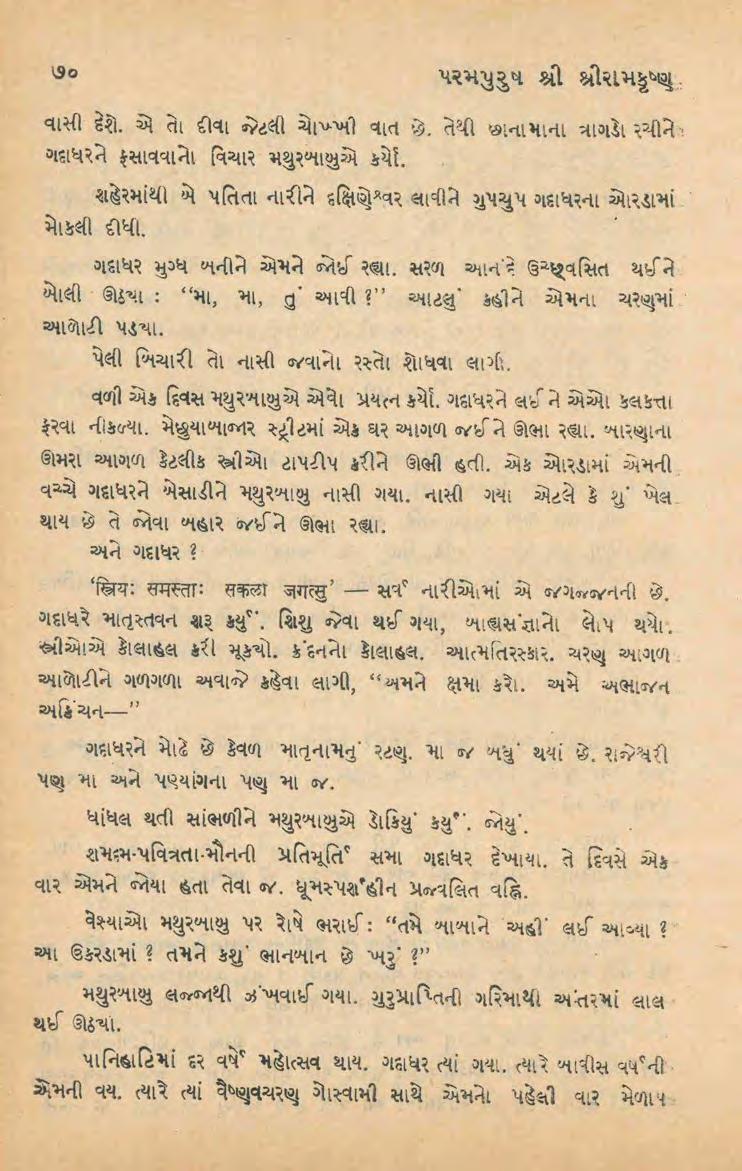 ૭૦ પરમપુરુષ શ્રી શ્રીરામકૃષ્ણ
વાસી દેશે. એ તો દીવા જેટલી ચોખ્ખી વાત છે. તેથી છાનામાના ત્રાગડો રચીને
ગદાધરને ફસાવવાનો વિચાર મથુરબાબુએ કર્યો.
શહેરમાંથી બે પતિતા નારીને દક્ષિણેશ્વર લાવીને ગુપચુપ ગદાધરના ઓરડામાં
મોકલી દીધી.
ગદાધર મુગ્ધ બનીને એમને જોઈ રહ્યા. સરળ આનંદે ઉચ્છ્વસિત થઈને
બોલી ઊઠ્યા : “મા, મા, તું આવી ?” આટલું કહીને એમના ચરણમાં
આળોટી પડ્યા.
પેલી બિચારી તો નાસી જવાનો રસ્તો શોધવા લાગી.
વળી એક દિવસ મથુરબાબુએ એવો પ્રયત્ન કર્યો. ગદાધરને લઈ ને એઓ કલકત્તા
ફરવા નીકળ્યા. મેછુયાબાજાર સ્ટ્રીટમાં એક ઘર આગળ જઈને ઊભા રહ્યા. બારણાના
ઊમરા આગળ કેટલીક સ્ત્રીઓ ટાપટીપ કરીને ઊભી હતી. એક ઓરડામાં એમની
વચ્ચે ગદાધરને બેસાડીને મથુરબાબુ નાસી ગયા. નાસી ગયા એટલે કે શું ખેલ
થાય છે તે જોવા બહાર જઈને ઊભા રહ્યા.
અને ગદાધર ?
‘स्त्रियः समस्ताः सकला जगत्सु’ — સર્વ નારીઓમાં એ જગજ્જનની છે.
ગદાધરે માતૃસ્તવન શરૂ કર્યું. શિશુ જેવા થઈ ગયા, બાહ્યસંજ્ઞાનો લોપ થયો.
સ્ત્રીઓએ કોલાહલ કરી મૂક્યો. ક્રંદનનો કોલાહલ. આત્મતિરસ્કાર. ચરણ આગળ
આળોટીને ગળગળા અવાજે કહેવા લાગી, “અમને ક્ષમા કરો. અમે અભાજન
અકિંચન—”
ગદાધરને મોઢે છે કેવળ માતૃનામનું રટણ. મા જ બધું થયાં છે. રાજેશ્વરી
પણ મા અને પણ્યાંગના પણ મા જ.
ધાંધલ થતી સાંભળીને મથુરબાબુએ ડોકિયું કર્યું. જોયું.
શમદમ-પવિત્રતા-મૌનની પ્રતિમૂર્તિ સમા ગદાધર દેખાયા. તે દિવસે એક
વાર એમને જોયા હતા તેવા જ. ધૂમસ્પર્શહીન પ્રજ્વલિત વહ્નિ.
વેશ્યાઓ મથુરબાબુ પર રોષે ભરાઈ : “તમે બાબાને અહીં લઈ આવ્યા ?
આ ઉકરડામાં ? તમને કશું ભાનબાન છે ખરું ?”
મથુરબાબુ લજ્જાથી ઝંખવાઈ ગયા. ગુરુપ્રાપ્તિની ગરિમાથી અંતરમાં લાલ
થઈ ઊઠ્યા.
પાનિહાટિમાં દર વર્ષે મહોત્સવ થાય. ગદાધર ત્યાં ગયા. ત્યારે બાવીસ વર્ષની
એમની વય. ત્યારે ત્યાં વૈષ્ણવચરણ ગોસ્વામી સાથે એમનો પહેલી વાર મેળાપ